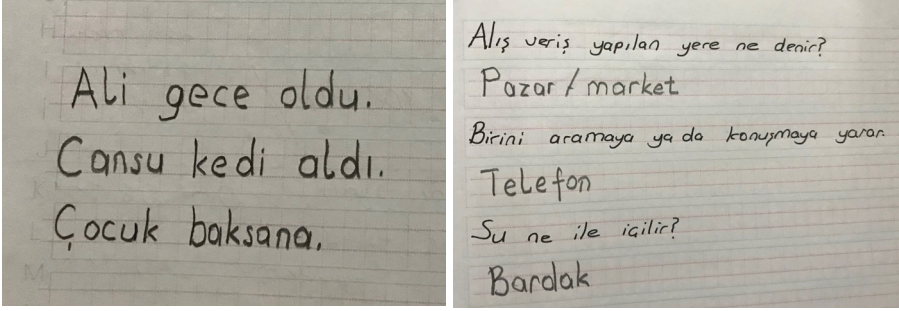 Ali gece oldu.
Cansu kedi aldı.
Çocuk baksana.
Alış veriş yapılan yere ne denir?
Pazar / market
Birini aramaya ya da konuşmaya yarar.
Telefon
Su ne ile içilir?
Bardak